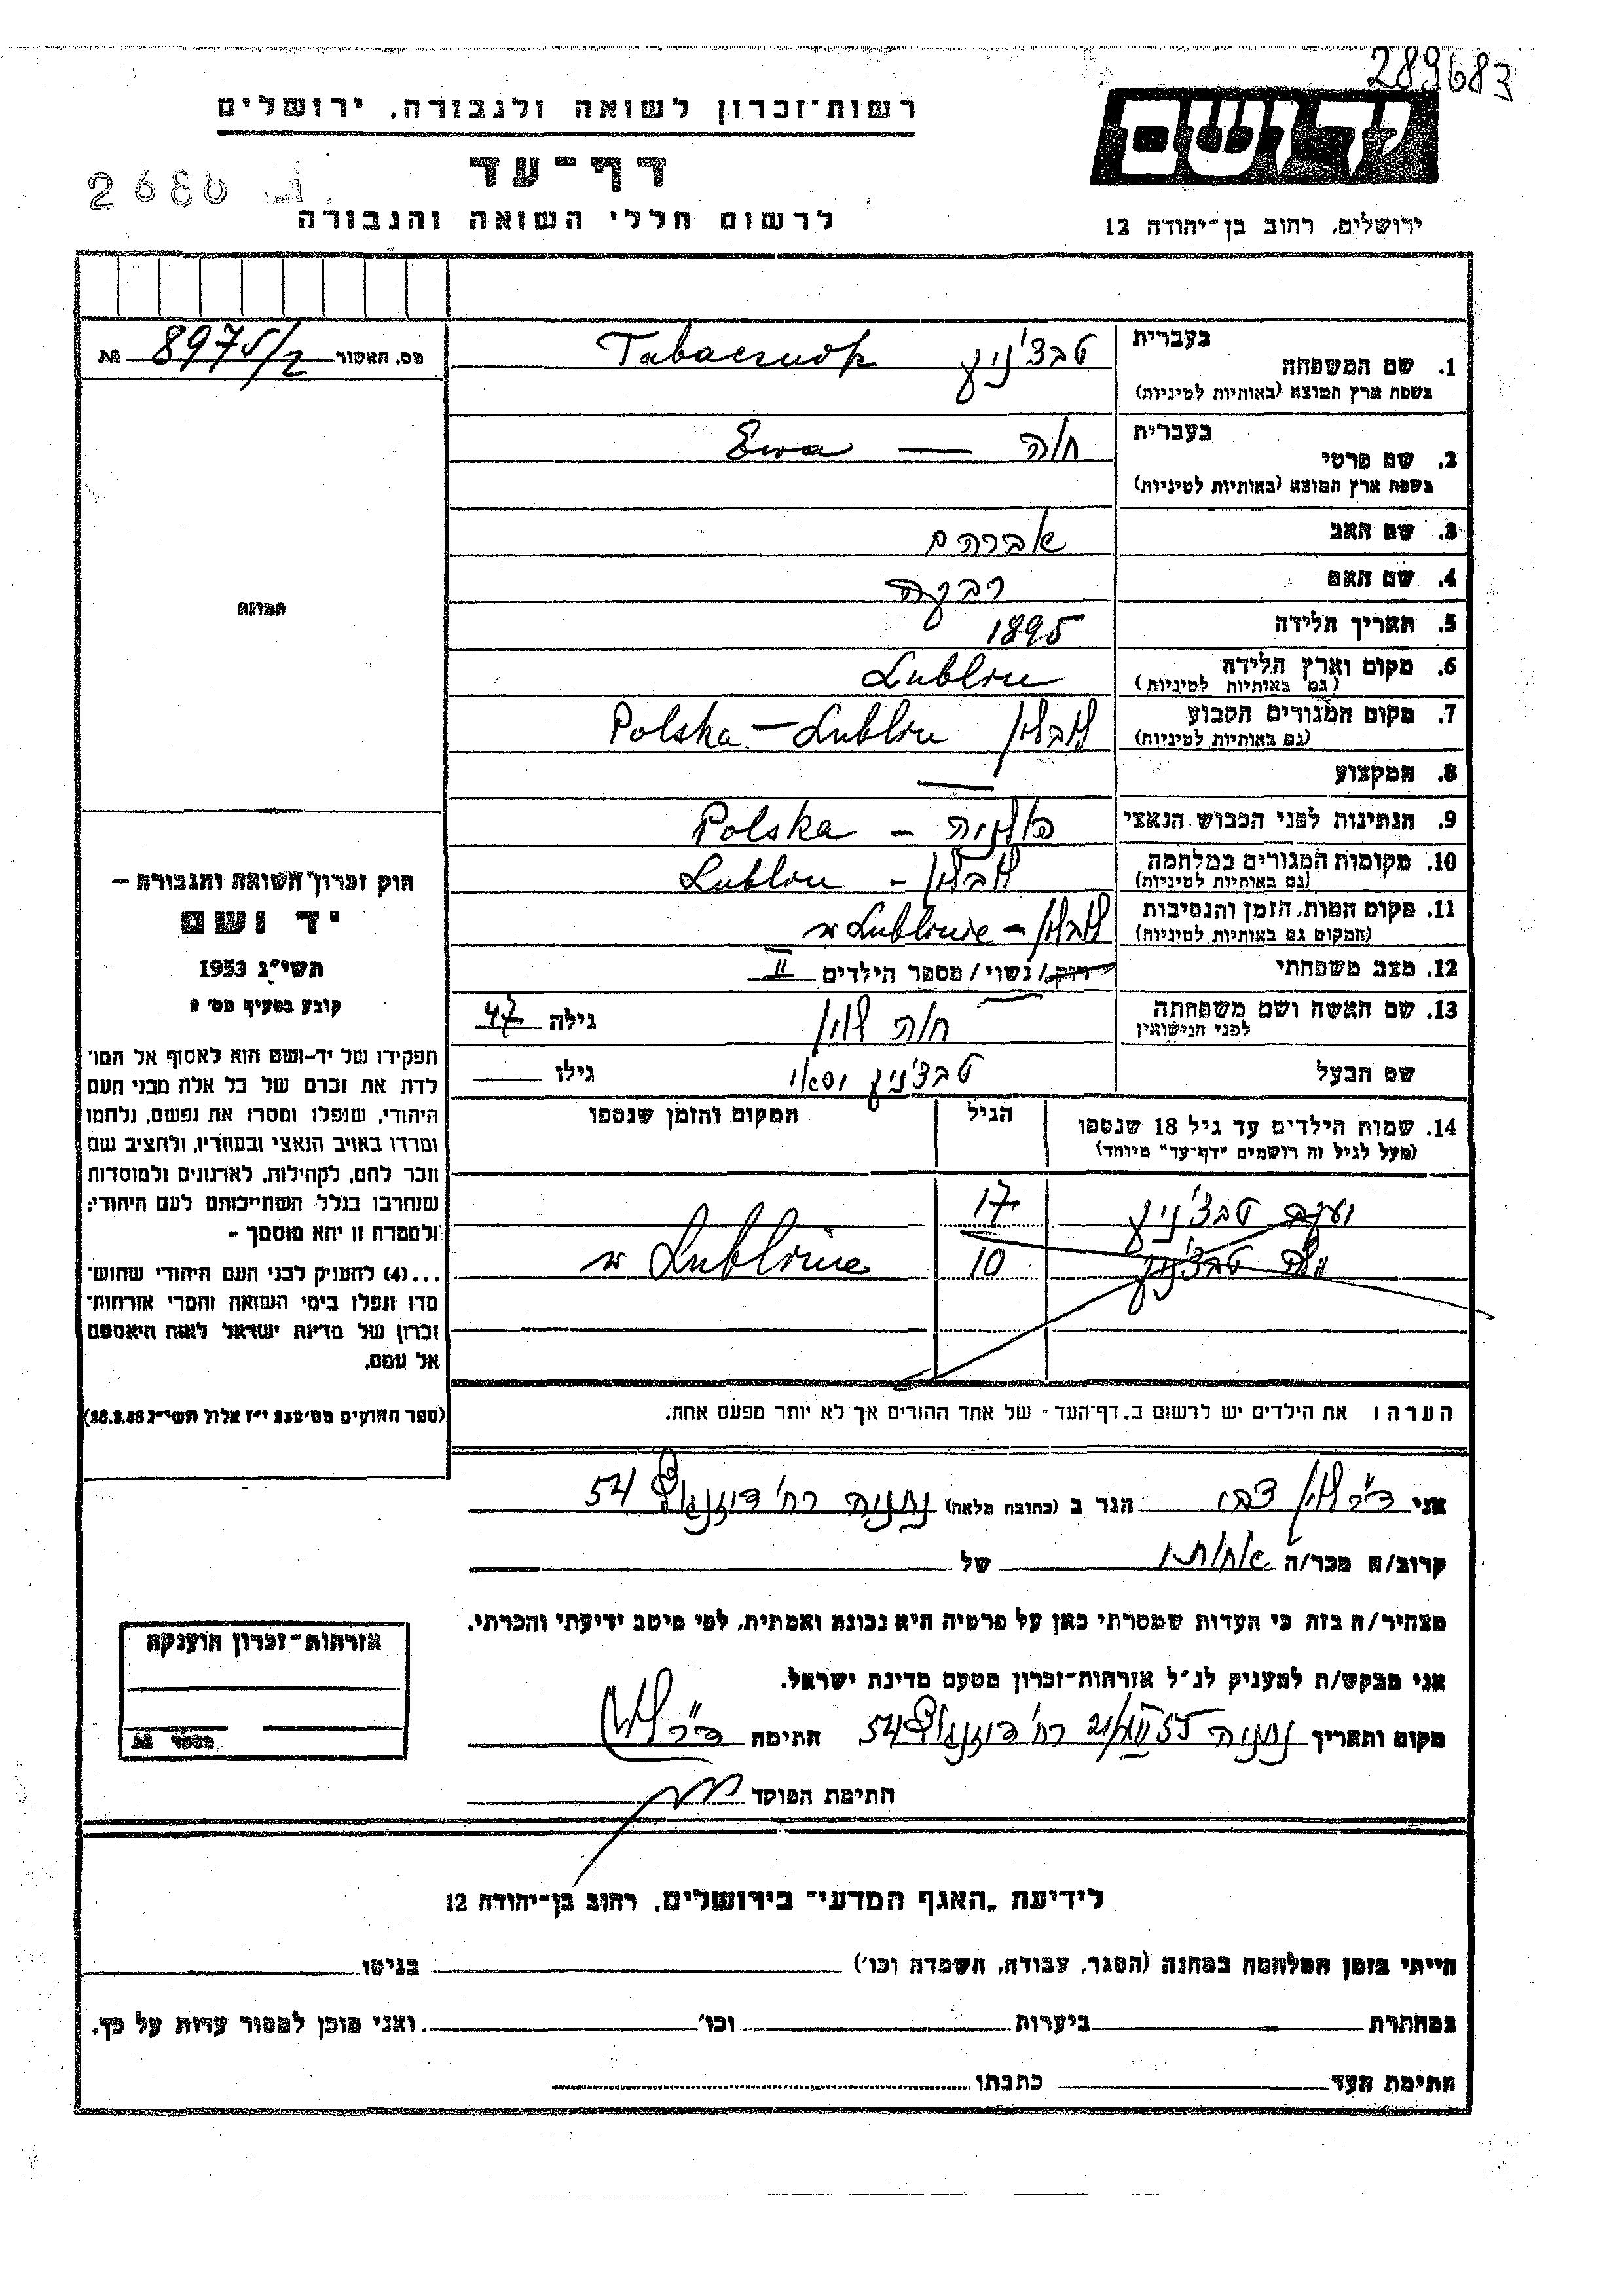 289683
רשות־זכרון לשואה ולגבורה, ירושלים
יד ושם
דף־עד
2680
לרשום חללי השואה והגבורה
ירושלים, רחוב בן־יהודה 12
מס. האשור 8975/2 №
בעברית
1. שם המשפחה Tabacznik
בשפת ארץ המוצא (באותיות לטיניות)
בעברית חוה — Ewa
2. שם פרטי
בשפת ארץ המוצא (באותיות לטיניות)
3. שם האב אברהם
4. שם האם רבקה
5. תאריך הלידה 1895
6. מקום וארץ הלידה Lublin
(גם באותיות לטיניות)
7. מקום המגורים הקבוע לובלין Polska – Lublin
(גם באותיות לטיניות)
8. המקצוע —
9. הנתינות לפני הכבוש הנאצי פולניה – Polska
10. מקומות המגורים במלחמה לובלין – Lublin
(גם באותיות לטיניות)
11. מקום המות, הזמן והנסיבות לובלין – w Lublinie
(המקום גם באותיות לטיניות)
12. מצב משפחתי רוק/נשוי/מספר הילדים II
13. שם האשה ושם משפחתה חוה גילה 47
לפני הנישואין
שם הבעל גילו
14. שמות הילדים עד גיל 18 שנספו הגיל המקום והזמן שנספו
(מעל לגיל זה רושמים "דף־עד" מיוחד)
17
10 w Lublinie
הערה: את הילדים יש לרשום ב„דף־העד" של אחד ההורים אך לא יותר מפעם אחת.
תמונה
חוק זכרון השואה והגבורה –
יד ושם
תשי"ג 1953
קובע בסעיף מס' 2
תפקידו של יד־ושם הוא לאסוף אל המו־
לדת את זכרם של כל אלה מבני העם
היהודי, שנפלו ומסרו את נפשם, נלחמו
ומרדו באויב הנאצי ובעוזריו, ולהציב שם
וזכר להם, לקהילות, לארגונים ולמוסדות
שנחרבו בגלל השתייכותם לעם היהודי;
ולמטרה זו יהא מוסמך –
...(4) להעניק לבני העם היהודי שהוש־
מדו ונפלו בימי השואה והמרי אזרחות־
זכרון של מדינת ישראל לאות היאספם
אל עמם.
(ספר החוקים מס' 132 י"ז אלול תשי"ג 28.8.53)
אני ד"ר הגר ב (כתובת מלאה) נתניה רח' דיזנגוף 54
קרוב/ה מכר/ה אחותי של
מצהיר/ה בזה כי העדות שמסרתי כאן על פרטיה היא נכונה ואמתית, לפי מיטב ידיעתי והכרתי.
אני מבקש/ת להעניק לנ"ל אזרחות־זכרון מטעם מדינת ישראל.
מקום ותאריך נתניה רח' דיזנגוף 54 חתימה ד"ר
חתימת הפוקד
אזרחות־זכרון הוענקה
מספר №
לידיעת „האגף המדעי" בירושלים, רחוב בן־יהודה 12
הייתי בזמן המלחמה במחנה (הסגר, עבודה, השמדה וכו') בגיטו
במחתרת ביערות וכו' ואני מוכן למסור עדות על כך.
חתימת העד כתבתו